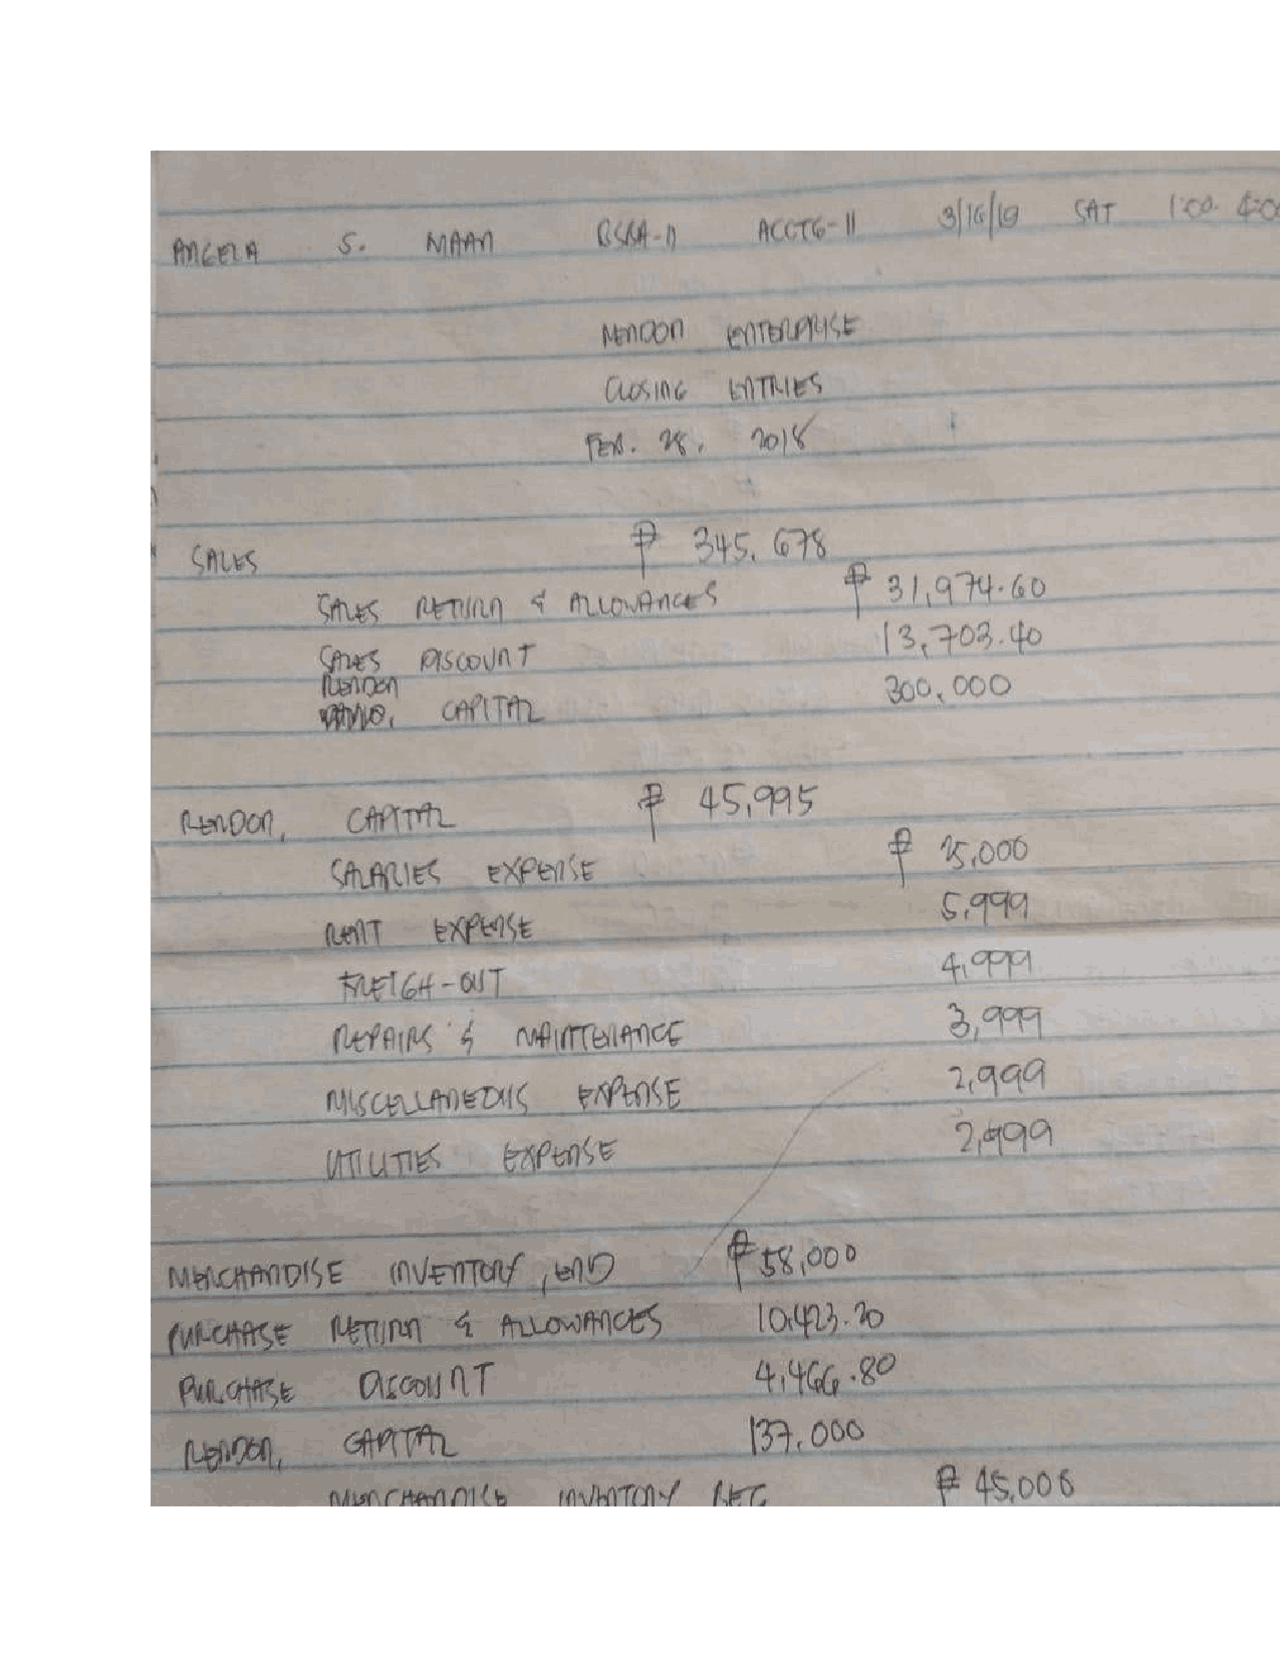 ANGELA S. MAAN BSBA-II ACCTG-II 3/16/19 SAT 1:00-4:00
RENDON ENTERPRISE
CLOSING ENTRIES
FEB. 28, 2018
SALES ₱ 345,678
SALES RETURN & ALLOWANCES ₱ 31,974.60
SALES DISCOUNT 13,703.40
RENDON
CAPITAL 300,000
RENDON, CAPITAL ₱ 45,995
SALARIES EXPENSE ₱ 25,000
RENT EXPENSE 5,999
FREIGH-OUT 4,999
REPAIRS & MAINTENANCE 3,999
MISCELLANEOUS EXPENSE 2,999
UTILITIES EXPENSE 2,999
MERCHANDISE INVENTORY, END ₱ 58,000
PURCHASE RETURN & ALLOWANCES 10,423.20
PURCHASE DISCOUNT 4,466.80
RENDON, CAPITAL 137,000
MERCHANDISE INVENTORY BEG ₱ 45,000